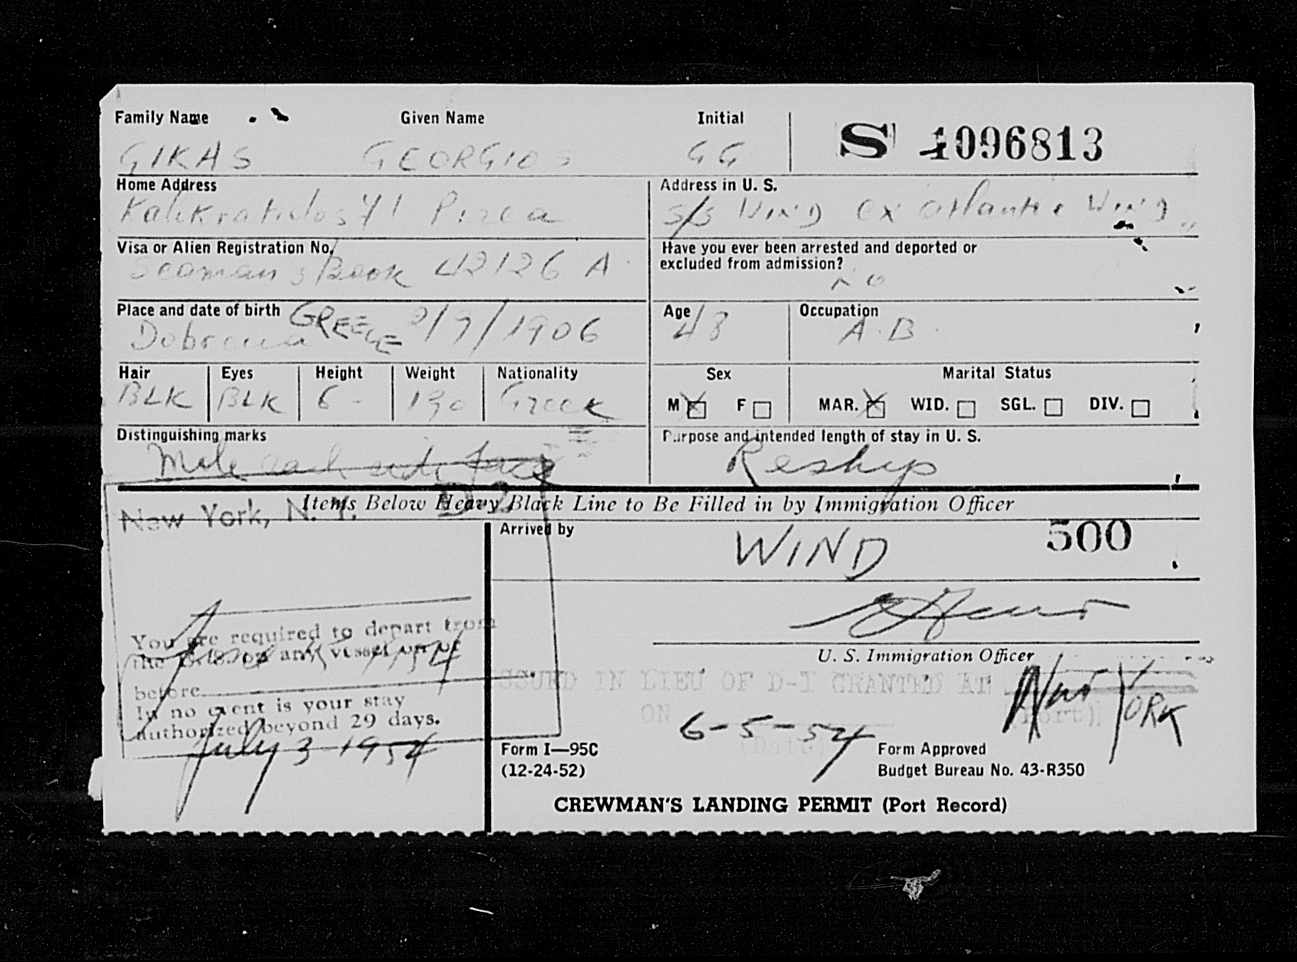 Family Name Given Name Initial
S 1096813
GIKAS GEORGIOS GG
Home Address Address in U. S.
Kalikratidos 71 Pirea S/S WIND ex Atlantic Wind
Visa or Alien Registration No. Have you ever been arrested and deported or
excluded from admission?
Seaman s Book 42126 A. No
Place and date of birth GREECE Age Occupation
/7/1906 48 A.B.
Hair Eyes Height Weight Nationality Sex Marital Status
BLK BLK 6 - 190 Greek M F MAR. WID. SGL. DIV.
Distinguishing marks Purpose and intended length of stay in U. S.
Mole each side face Reship
Items Below Heavy Black Line to Be Filled in by Immigration Officer
New York, N. Y.
Arrived by WIND 500
You are required to depart from
the on any vessel on or
before
In no event is your stay
authorized beyond 29 days.
July 3 1954
U. S. Immigration Officer
ISSUED IN LIEU OF D-1 GRANTED AT New York
(Port)
ON 6-5-54
(Date)
Form I—95C Form Approved
(12-24-52) Budget Bureau No. 43-R350
CREWMAN'S LANDING PERMIT (Port Record)